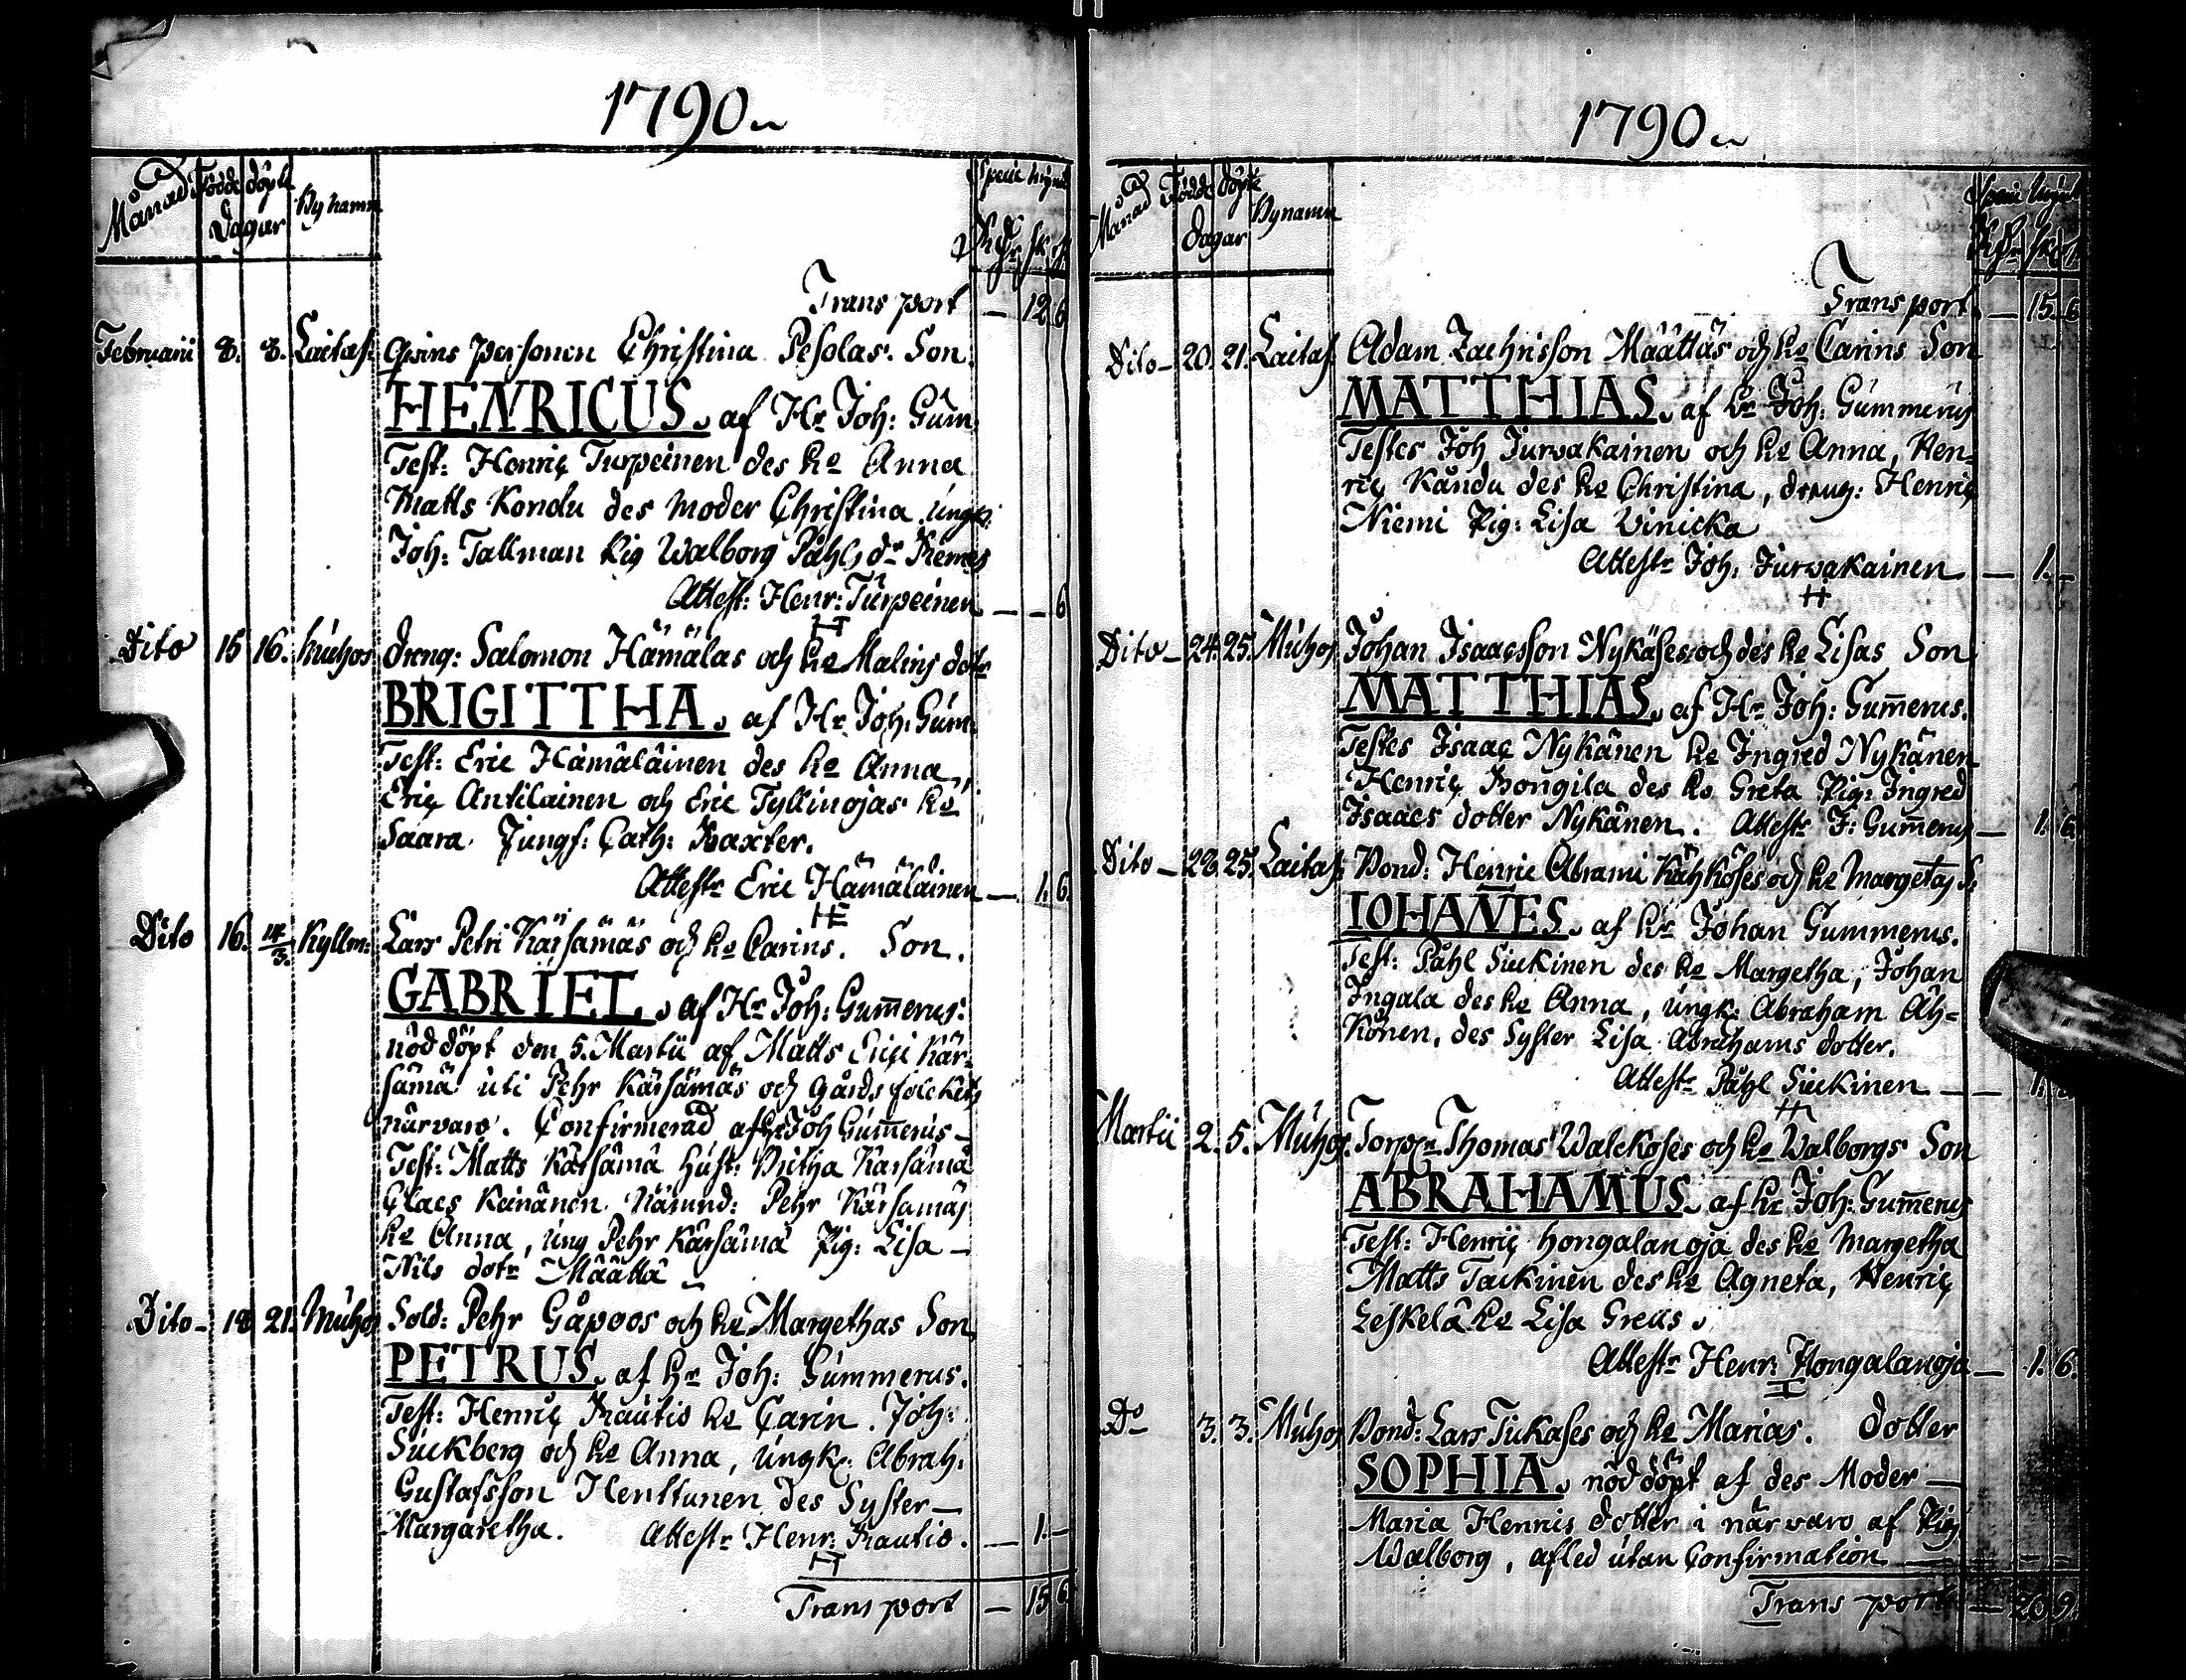 1790
Månad Födde döpte Dagar Bynamn
Specie mynt
Rdr sk
Transport — 12 6
Februarii 8. 8. Laitas: Qvins personen Christina Pesolas. Son
HENRICUS. af Hr Joh: Gum
Test: Henric Turpeinen des ho Anna
Matts Kondu des moder Christina ungk:
Joh: Tallman Pig Walborg Påhls dr Remes
Attest: Henr: Turpeinen — — 6
H
Dito 15 16. Muhos dreng: Salomon Hämäläs och ho Malins dotr
BRIGITTHA. af Hr Joh: Gum
Test: Eric Hämäläinen des ho Anna,
Eric Antilainen och Eric Tyllinojas ho
Saara. Jungf: Cath: Baxter.
Attestr Eric Hämäläinen — 1. 6.
HE
Dito 16. 14/3. Kyllm: Lars Petri Kärsämäs och ho Carins. Son.
GABRIEL. af Hr Joh: Gum̅erus:
nöddöpt den 5. Martii af Matts Erici Kär-
sämä uti Pehr Kärsämäs och gårds folckets
närvaro. Confirmerad af hr Joh Gum̅erus —
Test: Matts Kärsämä hust: Kärsämä
Claes Keinänen. Nämnd: Pehr Kärsämäs
ho Anna, ung Pehr Kärsämä Pig: Lisa —
Nils dotr Määttä
Dito — 18 21. Muhos Sold: Pehr Gåpoos och ho Margethas Son
PETRUS. af hr Joh: Gummerus.
Test: Henric Rautio ho Carin. Joh:
Suckberg och ho Anna, Ungk: Abrah:
Gustafsson Henttunen des Syster —
Margaretha. Attestr Henr: Rautio. — 1. —
H
Transport — 15 6
1790
Månad Födde döpte Dagar Bynamn
Specie mynt
Transport — 15. 6
Dito — 20. 21. Laitas. Adam Zachrisson Määttäs och ho Carins Son
MATTHIAS. af hr Joh: Gummerus
Testes Joh Jurvakainen och ho Anna, Hen-
ric Kåndu des ho Christina, dreng: Henric
Niemi Pig: Lisa Vinicka
Attestr Joh: Jurvakainen — 1. —
H
Dito — 24. 25. Muhos Johan Isaacsson Nykäses och des ho Lisas Son
MATTHIAS. af Hr Joh: Gum̅erus.
Testes Isaac Nykänen ho Ingred Nykänen
Henric Hongila des ho Greta Pig: Ingred
Isaacs dotter Nykänen. Attestr J: Gum̅erus — 1. 6.
Dito — 22. 25. Laitas: Bond: Henric Abrami Kähköses och ho Margetas S:
IOHAN̅ES. af hr Johan Gummerus.
Test: Påhl Suckinen des ho Margetha, Johan
Ingala des ho Anna, ungk: Abraham Äh=
könen, des Syster Lisa Abrahams dotter.
Attestr Påhl Suckinen — 1.
H
Martii 2. 5. Muhos. Torpr Thomas Walckoses och ho Walborgs Son
ABRAHAMUS. af hr Joh: Gum̅erus
Test: Henric hongalanoja des ho Margetha
Matts Tackinen des ho Agneta, Henric
Leskelä ho Lisa Greus.
Attestr Henr: Hongalanoja — 1. 6.
H
Do 3. 3. Muhos Bond: Lars Tickases och ho Marias. dotter
SOPHIA. nöddöpt af des Moder —
Maria Henrics dotter i närvaro af Pig
Walborg, afled utan Confirmation — — —
Transport — 20 9.